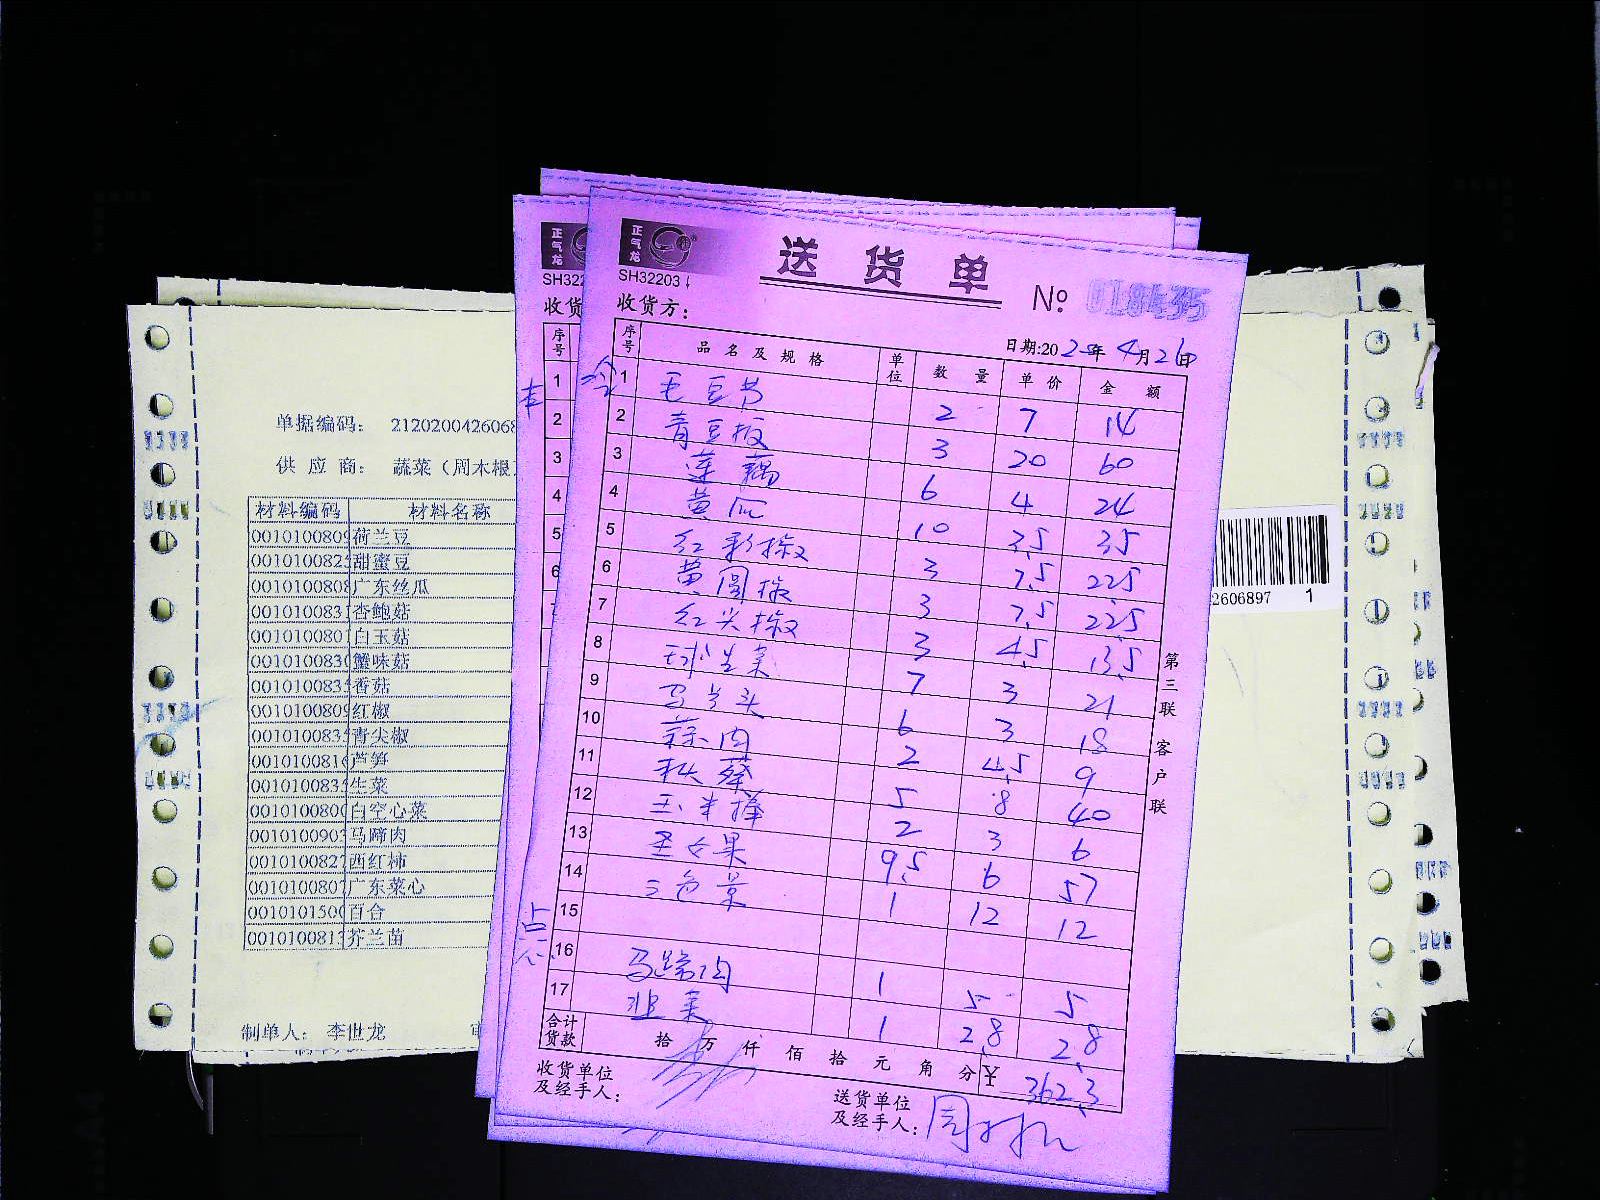 正气龙
SH32203
送货单
№ 018435
收货方：
日期:2020年4月26日
序号 品名及规格 单位 数量 单价 金额
1 毛豆节 2 7 14
2 青豆板 3 20 60
3 莲藕 6 4 24
4 黄瓜 10 3.5 35
5 红彩椒 3 7.5 22.5
6 黄圆椒 3 7.5 22.5
7 红尖椒 3 4.5 13.5
8 球生菜 7 3 21
9 马兰头 6 3 18
10 蒜肉 2 4.5 9
11 秋葵 5 8 40
12 玉米棒 2 3 6
13 圣女果 9.5 6 57
14 三色堇 1 12 12
15
16 马蹄肉 1 5 5
17 韭菜 1 2.8 2.8
合计货款 拾万仟佰拾元角分 ¥ 362.3
收货单位及经手人：
送货单位及经手人：
第三联 客户联
正气龙
SH322
收货
序号
1
2
3
4
5
6
单据编码： 2120200426068
供应商： 蔬菜（周木根
材料编码 材料名称
001010080 荷兰豆
001010082 甜蜜豆
001010080 广东丝瓜
001010083 杏鲍菇
001010080 白玉菇
001010083 蟹味菇
001010083 香菇
001010080 红椒
001010083 青尖椒
001010081 芦笋
001010083 生菜
001010080 白空心菜
001010090 马蹄肉
001010082 西红柿
001010080 广东菜心
001010150 百合
001010081 芥兰苗
制单人： 李世龙
2606897 1